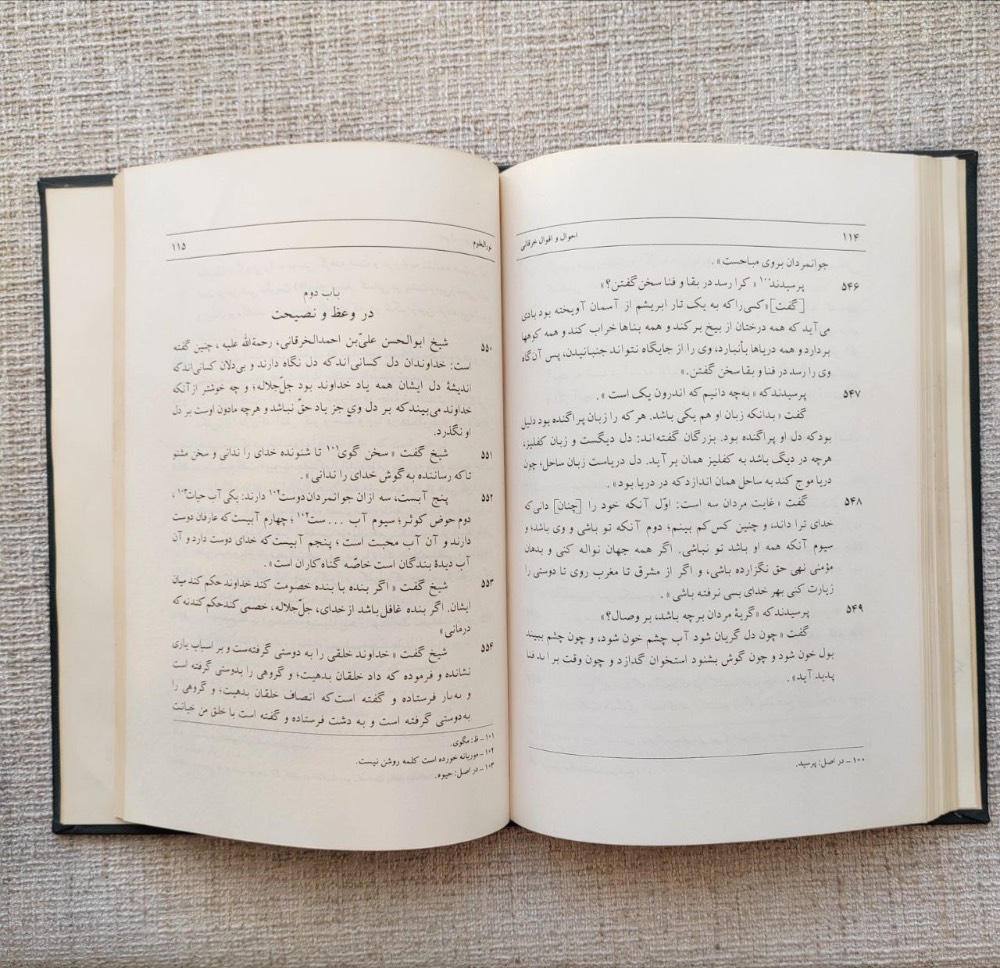 ۱۱۴ احوال و اقوال خرقانی
جوانمردان بروی مباحست».
۵۴۶ پرسیدند۱۰۰ «کرا رسد در بقا و فنا سخن گفتن؟»
[گفت] «کسی را که به یک تار ابریشم از آسمان آویخته بود بادی
می‌آید که همه درختان از بیخ بر کند و همه بناها خراب کند و همه کوهها
بردارد و همه دریاها بأنبارد، وی را از جایگاه نتواند جنبانیدن، پس آن‌گاه
وی را رسد در فنا و بقا سخن گفتن.»
۵۴۷ پرسیدند که «به‌چه دانیم که اندرون یک است».
گفت «بدانکه زبان او هم یکی باشد. هر که را زبان پراگنده بود دلیل
بود که دل او پراگنده بود. بزرگان گفته‌اند: دل دیگست و زبان کفلیز،
هرچه در دیگ باشد به کفلیز همان بر آید. دل دریاست زبان ساحل، چون
دریا موج کند به ساحل همان اندازد که در دریا بود».
۵۴۸ گفت «غایت مردان سه است: اوّل آنکه خود را [چنان] دانی که
خدای ترا داند، و چنین کس کم بینم؛ دوم آنکه تو باشی و وی باشد؛ و
سیوم آنکه همه او باشد تو نباشی. اگر همه جهان نواله کنی و بدهان
مؤمنی نهی حق نگزارده باشی، و اگر از مشرق تا مغرب روی تا دوستی را
زیارت کنی بهر خدای بسی نرفته باشی».
۵۴۹ پرسیدند که «گریهٔ مردان بر چه باشد، بر وصال؟»
گفت «چون دل گریان شود آب چشم خون شود، و چون چشم ببیند
بول خون شود و چون گوش بشنود استخوان گدازد و چون وقت بر اید فنا
پدید آید».
۱۰۰- در اصل: پرسید.
نورالعلوم ۱۱۵
باب دوم
در وعظ و نصیحت
۵۵۰ شیخ ابوالحسن علیّ‌بن احمدالخرقانی، رحمةالله علیه، چنین گفته
است: خداوندان دل کسانی‌اند که دل نگاه دارند و بی‌دلان کسانی‌اند که
اندیشهٔ دل ایشان همه یاد خداوند بود جلّ‌جلاله؛ و چه خوشتر از آنکه
خداوند می‌بیند که بر دل وی جز یاد حقّ نباشد و هرچه مادون اوست بر دل
او نگذرد.
۵۵۱ شیخ گفت «سخن گوی۱۰۱ تا شنونده خدای را ندانی و سخن مشنو
تا که رساننده به گوش خدای را ندانی».
۵۵۲ پنج آبست، سه ازان جوانمردان دوست۱۰۲ دارند: یکی آب حیات۱۰۳،
دوم حوض کوثر؛ سیوم آب ... ست۱۰۲؛ چهارم آبیست که عارفان دوست
دارند و آن آب محبت است، پنجم آبیست که خدای دوست دارد و آن
آب دیدهٔ بندگان است خاصّه گناه‌کاران است».
۵۵۳ شیخ گفت «اگر بنده با بنده خصومت کند خداوند حکم کند میان
ایشان. اگر بنده غافل باشد از خدای، جلّ‌جلاله، خصمی کند حکم کند نه که
درمانی»
۵۵۴ شیخ گفت «خداوند خلقی را به دوستی گرفته‌ست و بر اسباب یاری
نشانده و فرموده که داد خلقان بدهیت؛ و گروهی را بدوستی گرفته است
و به‌بار فرستاده و گفته است که انصاف خلقان بدهیت؛ و گروهی را
به‌دوستی گرفته است و به دشت فرستاده و گفته است با خلق من خیانت
۱۰۱- ظ: مگوی.
۱۰۲- موریانه خورده است کلمه روشن نیست.
۱۰۳- در اصل: حیوه.